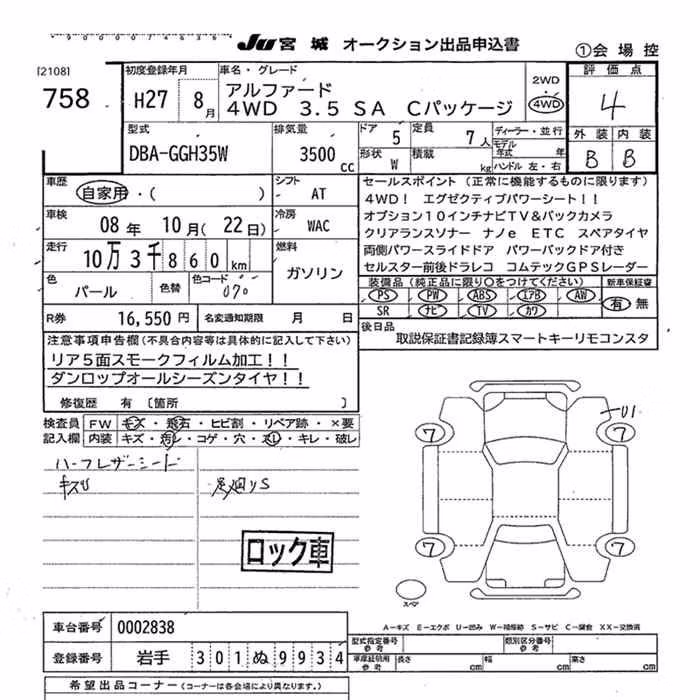 JU 宮城 オークション出品申込書
①会場控
[2108]
758
初度登録年月
H27 8月
車名・グレード
アルファード
4WD 3.5 SA Cパッケージ
2WD
4WD
評価点
4
外装 内装
B B
型式
DBA-GGH35W
排気量
3500cc
ドア 5
定員 7人
形状 W
積載 kg
ディーラー・並行
モデル年式 年
ハンドル 左・右
車歴
自家用・( )
シフト
AT
車検
08年 10月(22日)
冷房
WAC
走行
10万3千860km
燃料
ガソリン
色
パール
色替
色コード
070
R券 16,550円
名変通知期限 月 日
セールスポイント (正常に機能するものに限ります)
4WD! エグゼクティブパワーシート!!
オプション10インチナビTV&バックカメラ
クリアランスソナー ナノe ETC スペアタイヤ
両側パワースライドドア パワーバックドア付き
セルスター前後ドラレコ コムテックGPSレーダー
装備品(純正品に限り○をつけてください)
PS PW ABS エアB AW
SR ナビ TV カワ
新車保証書
有 無
後日品
取説保証書記録簿スマートキーリモコンスタ
注意事項申告欄(不具合内容等は具体的に記入して下さい)
リア5面スモークフィルム加工!!
ダンロップオールシーズンタイヤ!!
修復歴 有 〔箇所 〕
検査員記入欄
FW キズ・飛石・ヒビ割・リペア跡・×要
内装 キズ・汚レ・コゲ・穴・スレ・キレ・破レ
ハーフレザーシート
キズU
足廻りS
ロック車
U1
7 7
7 7
スペア
A-キズ E-エクボ U-凹み W-補修跡 S-サビ C-腐食 XX-交換済
車台番号 0002838
登録番号 岩手 301ぬ9934
型式指定番号 参考
類別区分番号 参考
車庫証明用 参考
長さ 幅 高さ
希望出品コーナー(コーナーは各会場により異なります。)